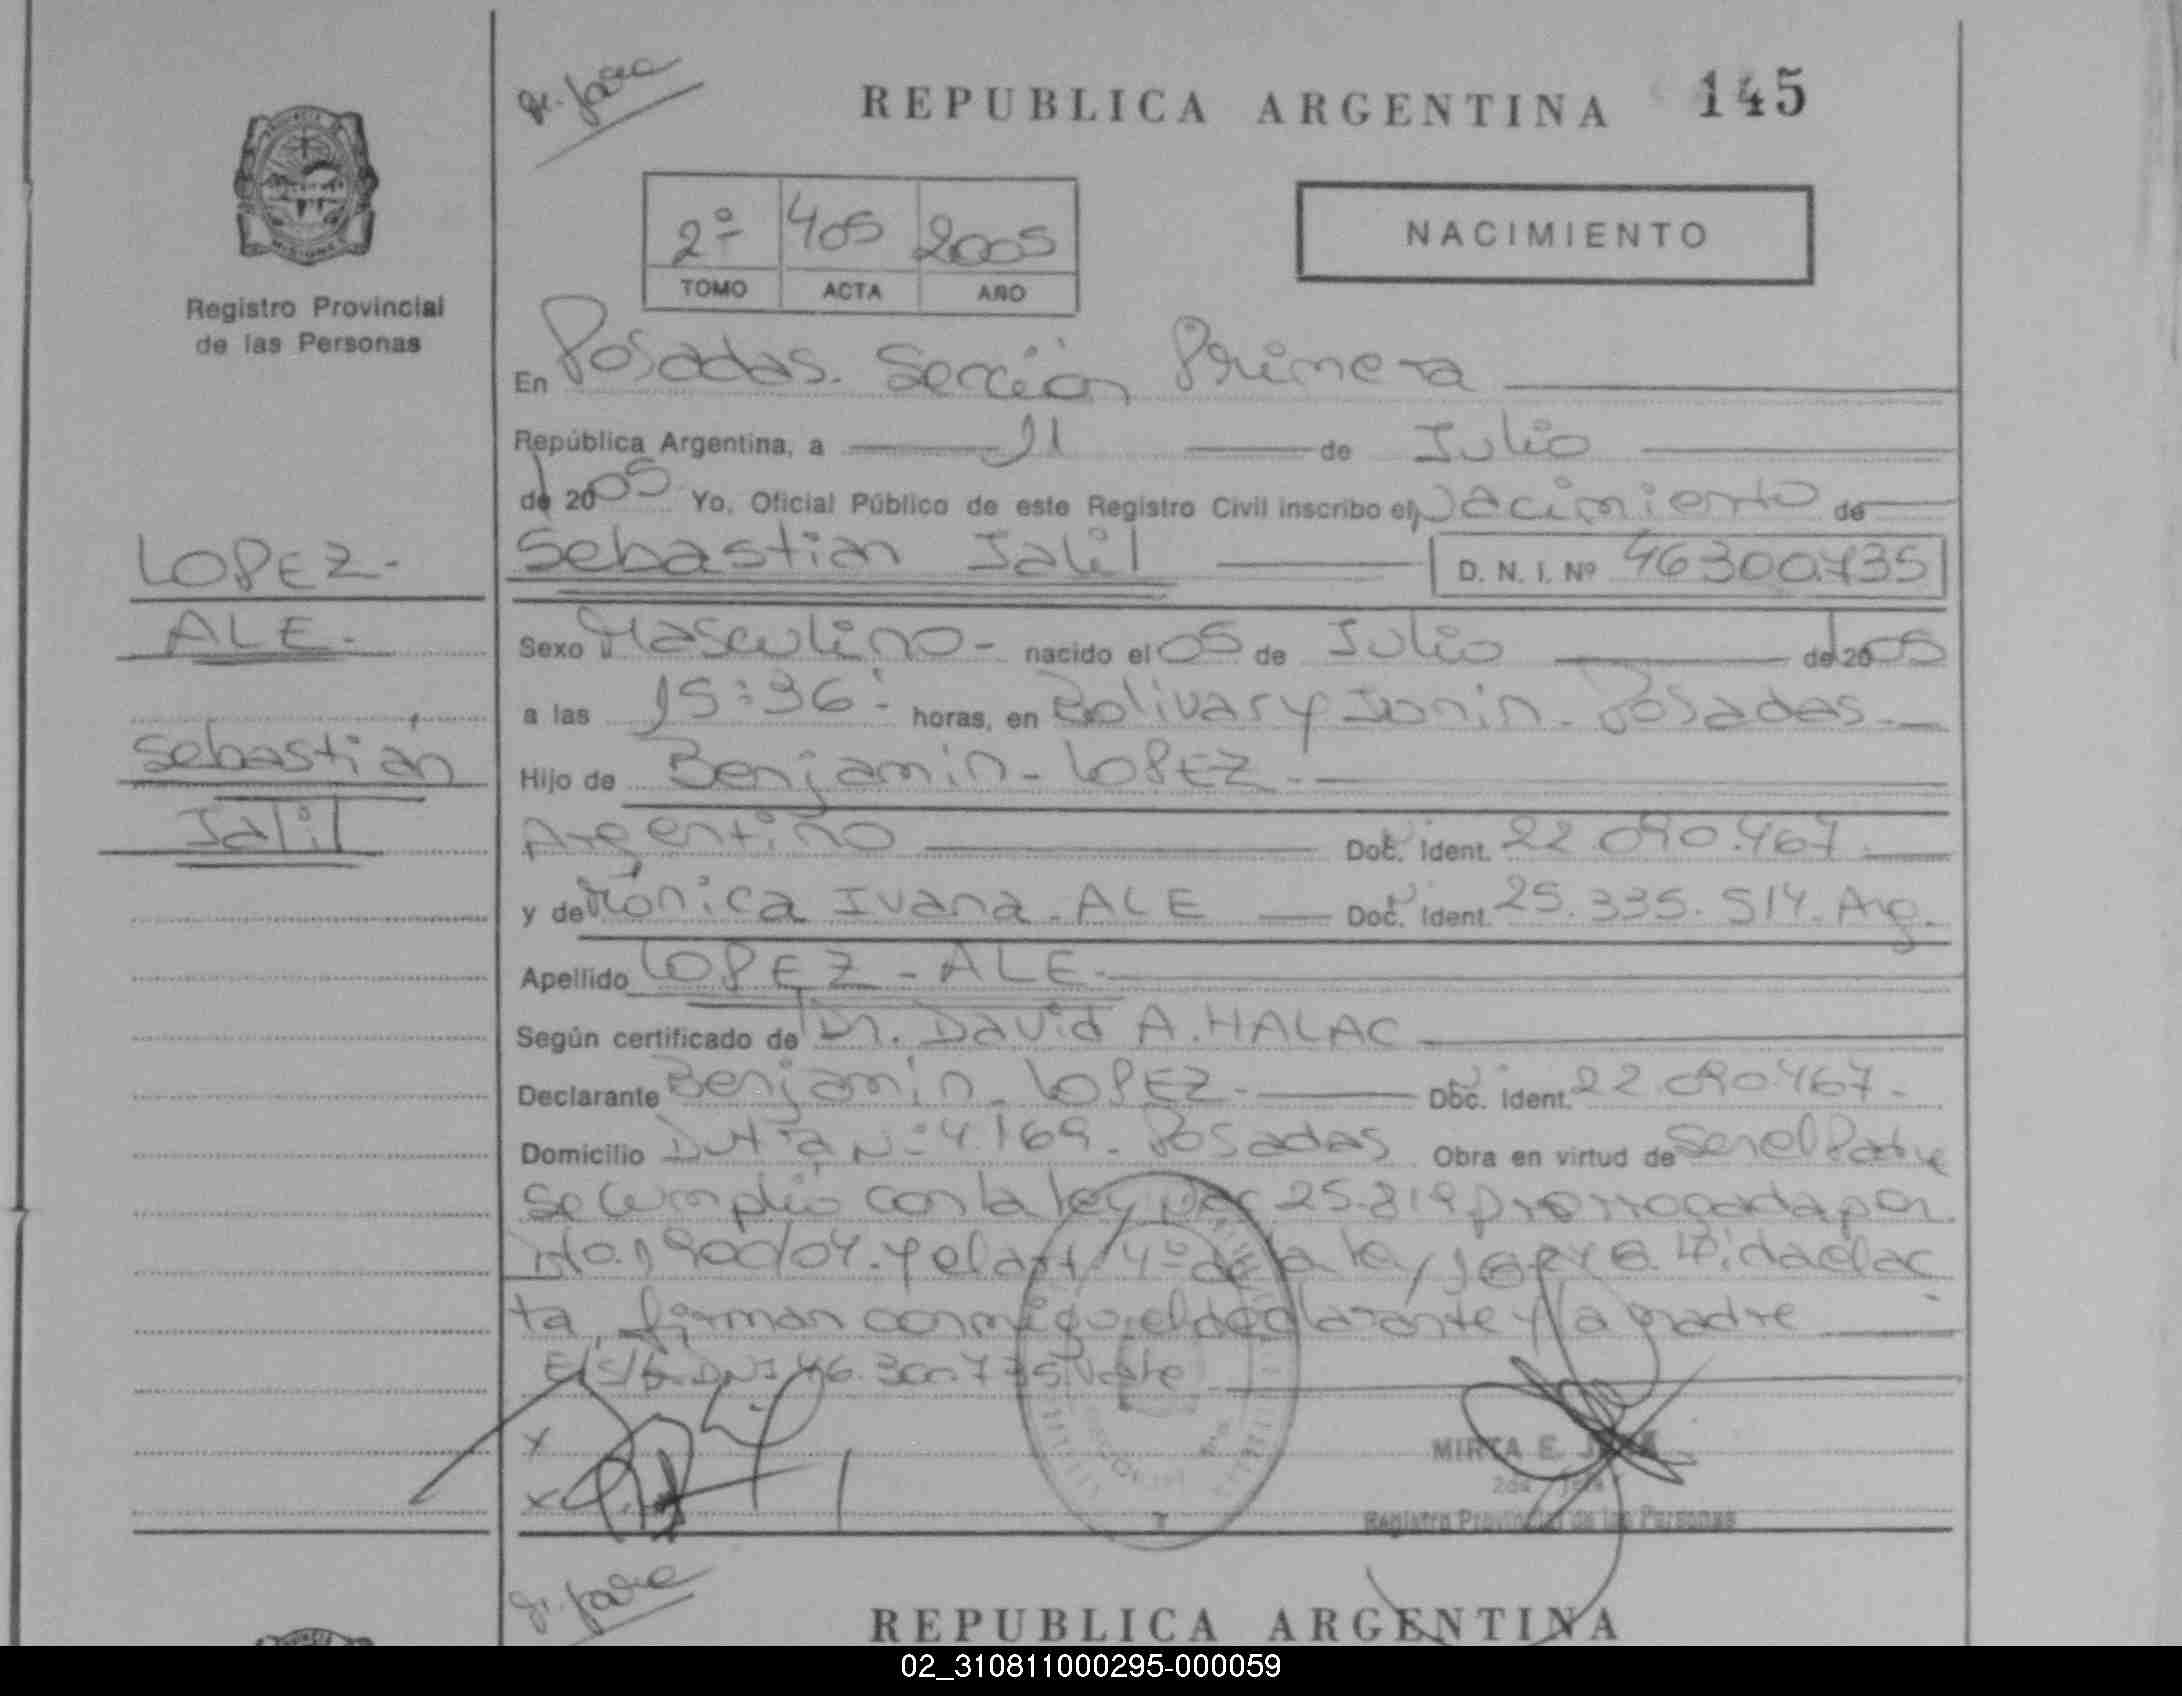 REPUBLICA ARGENTINA 145
2º 405 2005
TOMO ACTA AÑO
NACIMIENTO
Registro Provincial
de las Personas
En Posadas. Sección Primera
República Argentina, a 11 de Julio
de 2005 Yo, Oficial Público de este Registro Civil inscribo el Nacimiento de
LOPEZ-
ALE.
Sebastián
Jalil
Sebastian Jalil D. N. I. Nº 46300.735
Sexo Masculino- nacido el 05 de Julio de 2005
a las 15:36 horas, en Bolivar y Junin. Posadas.
Hijo de Benjamin- LOPEZ-
Argentino Doc. Ident. 22.090.467
y de Mónica Ivana. ALE Doc. Ident. 25.335.514. Arg.
Apellido LOPEZ-ALE.
Según certificado de Dr. David A. HALAC
Declarante Benjamin. LOPEZ- Doc. Ident. 22.090.467.
Domicilio Nº 4.169. Posadas Obra en virtud de Ser el Padre
Se cumplió con la ley nac 25.819 prorrogada por
dto. 1900/04. y el art 4º de la ley Leida el ac
ta, firman conmigo, el declarante y la madre
E/S/R. DNI 46.300.735 Vale
X
X
MIRTA E.
Registro Provincial de las Personas
REPUBLICA ARGENTINA
02_310811000295-000059